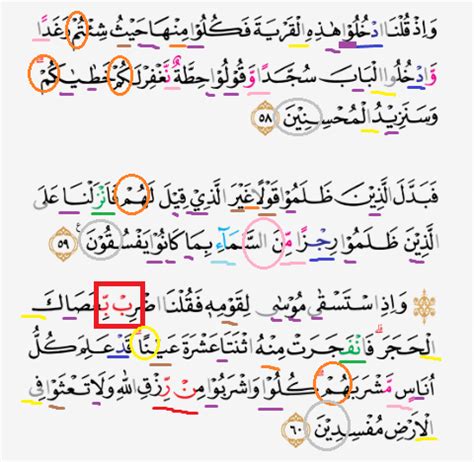 وَاِذْ قُلْنَا ادْخُلُوْا هٰذِهِ الْقَرْيَةَ فَكُلُوْا مِنْهَا حَيْثُ شِئْتُمْ رَغَدًا
وَّادْخُلُوا الْبَابَ سُجَّدًا وَّقُوْلُوْا حِطَّةٌ نَّغْفِرْ لَكُمْ خَطٰيٰكُمْ ۗ
وَسَنَزِيْدُ الْمُحْسِنِيْنَ ٥٨
فَبَدَّلَ الَّذِيْنَ ظَلَمُوْا قَوْلًا غَيْرَ الَّذِيْ قِيْلَ لَهُمْ فَاَنْزَلْنَا عَلَى
الَّذِيْنَ ظَلَمُوْا رِجْزًا مِّنَ السَّمَاۤءِ بِمَا كَانُوْا يَفْسُقُوْنَ ࣖ ٥٩
۞ وَاِذِ اسْتَسْقٰى مُوْسٰى لِقَوْمِهٖ فَقُلْنَا اضْرِبْ بِّعَصَاكَ
الْحَجَرَۗ فَانْفَجَرَتْ مِنْهُ اثْنَتَا عَشْرَةَ عَيْنًا ۗ قَدْ عَلِمَ كُلُّ
اُنَاسٍ مَّشْرَبَهُمْ ۗ كُلُوْا وَاشْرَبُوْا مِنْ رِّزْقِ اللّٰهِ وَلَا تَعْثَوْا فِى
الْاَرْضِ مُفْسِدِيْنَ ٦٠